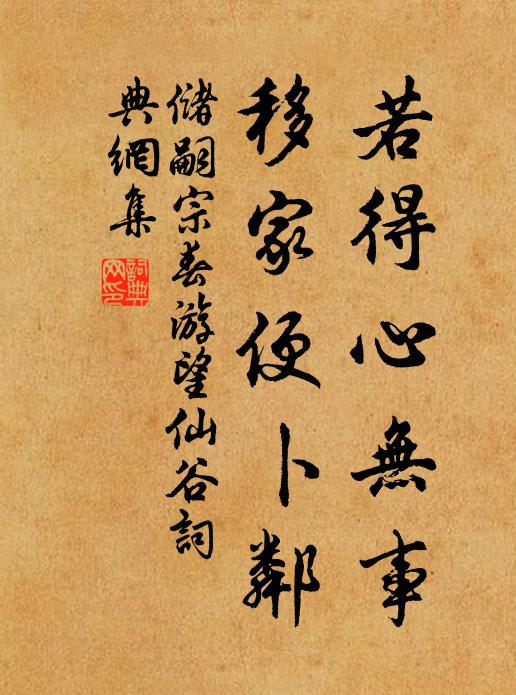 若得心無事
移家便卜鄰
儲嗣宗春游望仙谷詞
典網集
詞典網印